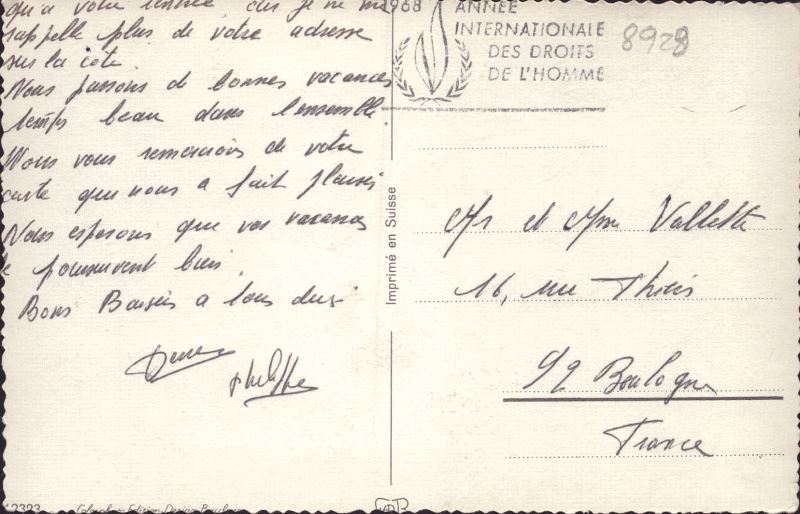 qu'a votre rentrée car je ne me
rappelle plus de votre adresse
sur la côte.
Nous passons de bonnes vacances
temps beau dans l'ensemble.
Nous vous remercions de votre
carte qui nous a fait plaisir
Nous esperons que vos vacances
se poursuivent bien.
Bons Baisers a tous deux
Philippe
1968 ANNÉE
INTERNATIONALE
DES DROITS
DE L'HOMME
8928
Imprimé en Suisse
Mr et Mme Vallette
16, rue Thiers
92 Boulogne
France
12323
Edition